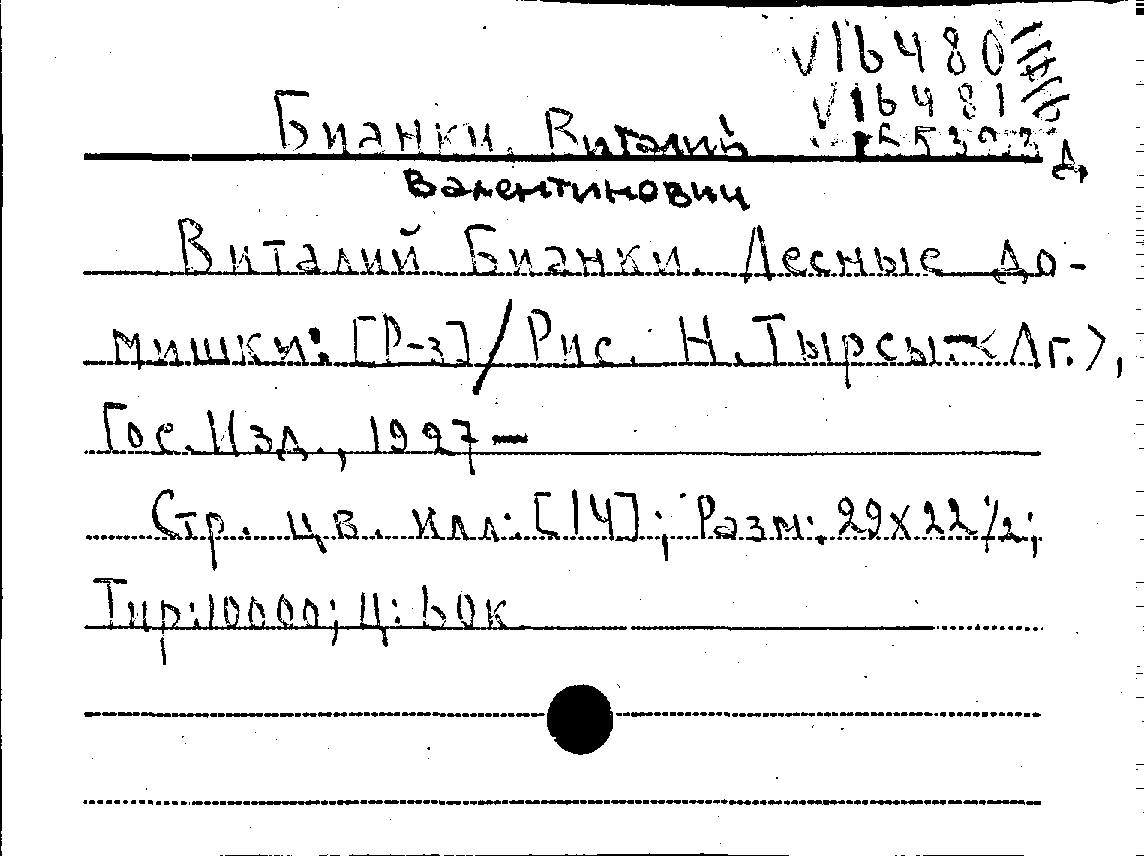 V16480
V16481
Бианки, Виталий
Д
Валентинович
Виталий Бианки. Лесные до-
мишки: [Р-з] / Рис. Н. Тырсы.-<Лг.>,
Гос. Изд., 1927 —
Стр. цв. илл: [14]; Разм: 29х22 1/2;
Тир: 10000; Ц: 60к